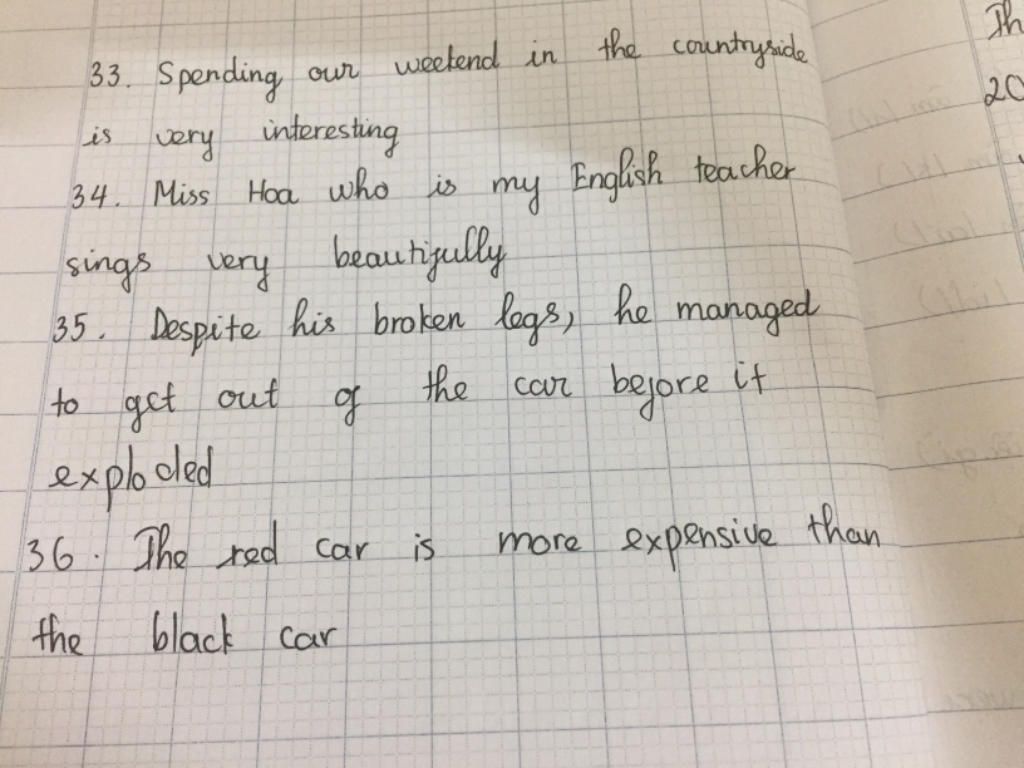 33. Spending our weekend in the countryside
is very interesting
34. Miss Hoa who is my English teacher
sings very beautifully
35. Despite his broken legs, he managed
to get out of the car before it
exploded
36. The red car is more expensive than
the black car
Th
20